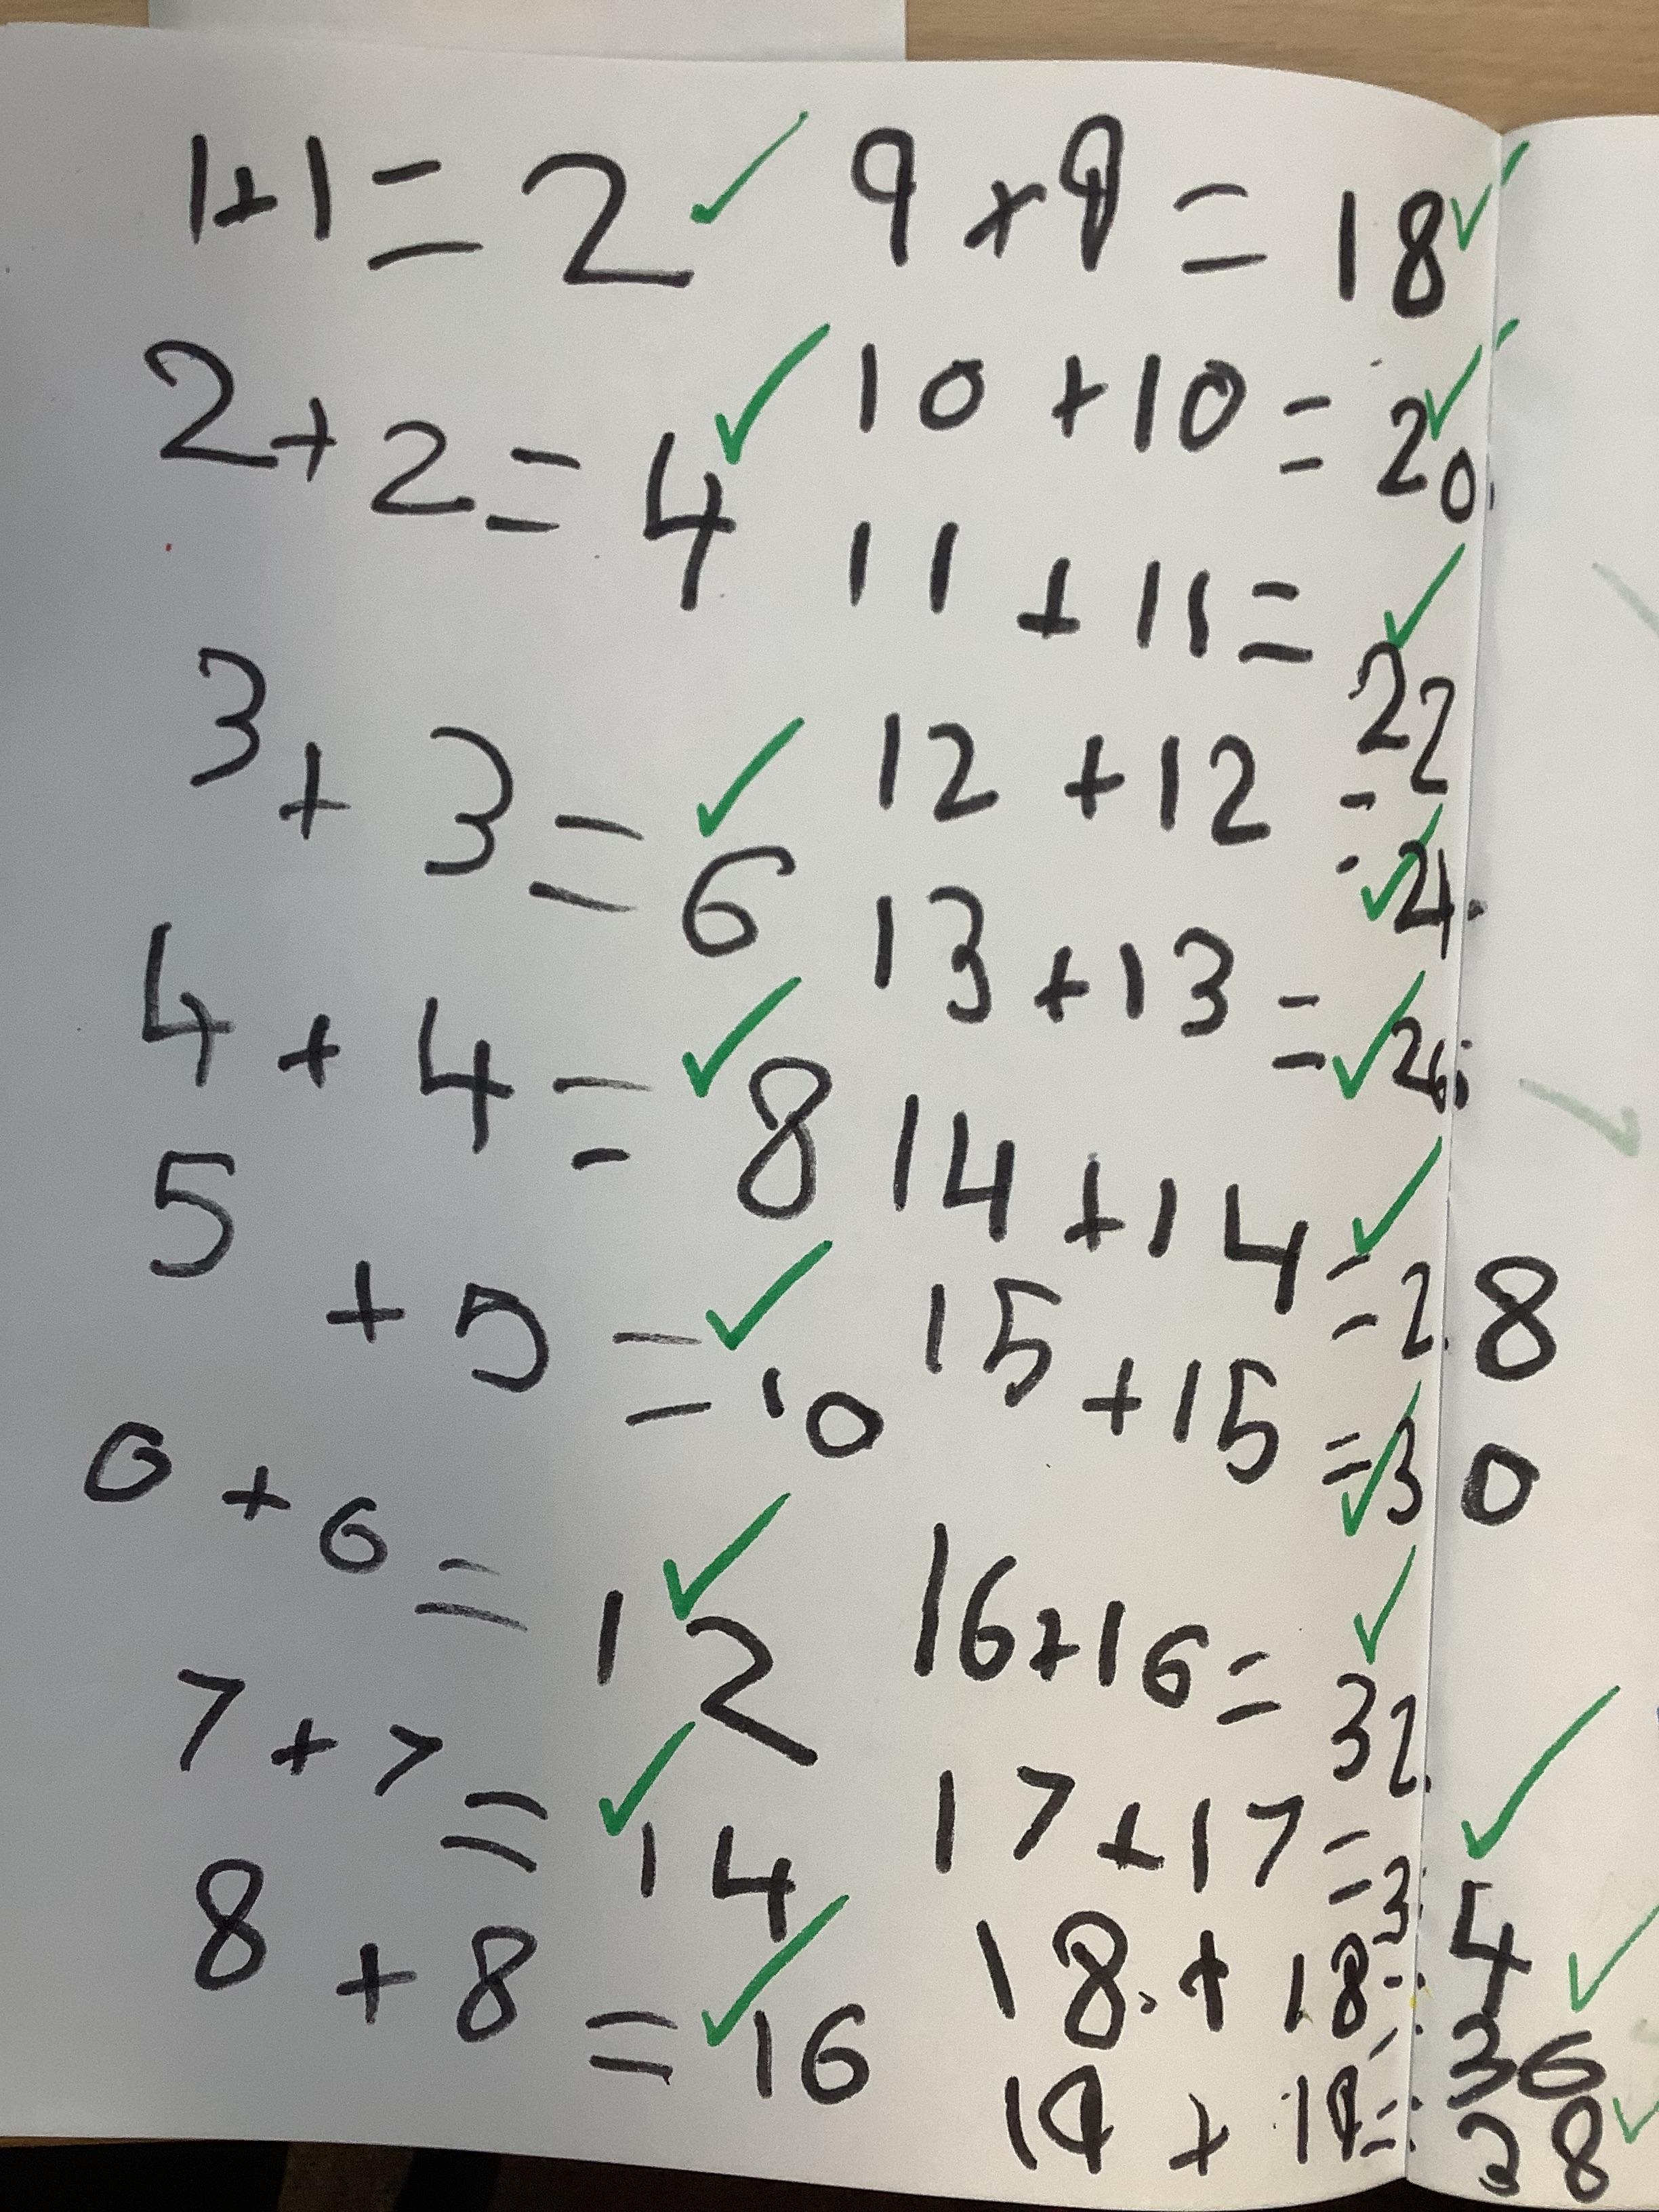 1+1=2
2+2=4
3+3=6
4+4=8
5+5=10
6+6=12
7+7=14
8+8=16
9+9=18
10+10=20
11+11=22
12+12=24
13+13=26
14+14=28
15+15=30
16+16=32
17+17=34
18+18=36
19+19=38